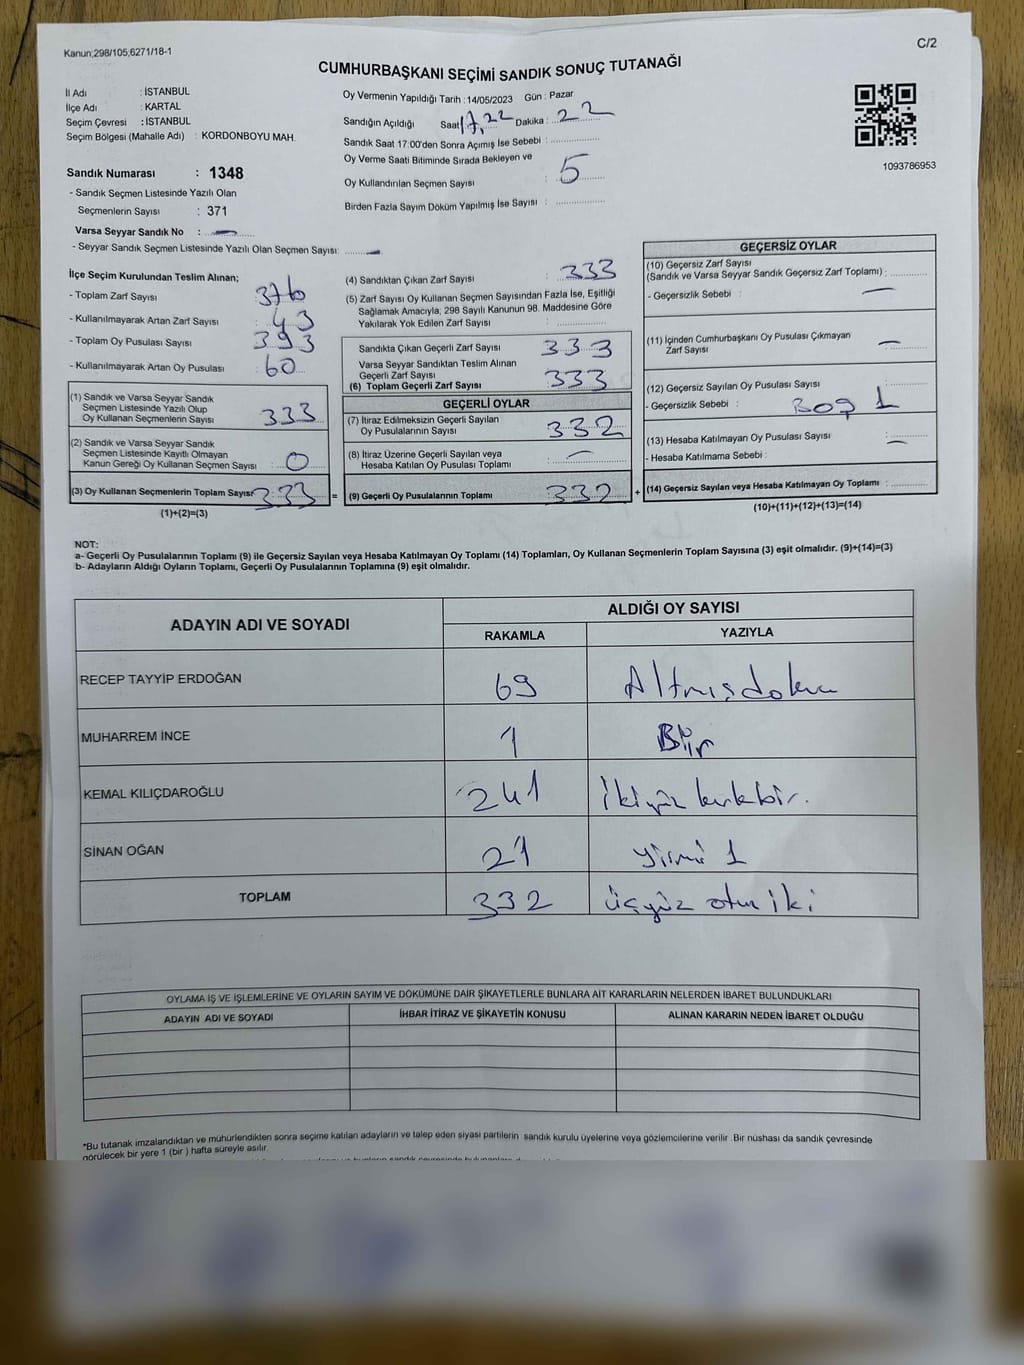 Kanun;298/105;6271/18-1
C/2
CUMHURBAŞKANI SEÇİMİ SANDIK SONUÇ TUTANAĞI
İl Adı : İSTANBUL
İlçe Adı : KARTAL
Seçim Çevresi : İSTANBUL
Seçim Bölgesi (Mahalle Adı) : KORDONBOYU MAH.
Oy Vermenin Yapıldığı Tarih : 14/05/2023 Gün : Pazar
Sandığın Açıldığı Saat 17,22 Dakika : 22
Sandık Saat 17:00'den Sonra Açımış İse Sebebi :
Oy Verme Saati Bitiminde Sırada Bekleyen ve
Oy Kullandırılan Seçmen Sayısı : 5
Birden Fazla Sayım Döküm Yapılmış İse Sayısı :
1093786953
Sandık Numarası : 1348
- Sandık Seçmen Listesinde Yazılı Olan
Seçmenlerin Sayısı : 371
Varsa Seyyar Sandık No : —
- Seyyar Sandık Seçmen Listesinde Yazılı Olan Seçmen Sayısı: —
İlçe Seçim Kurulundan Teslim Alınan;
- Toplam Zarf Sayısı : 376
- Kullanılmayarak Artan Zarf Sayısı : 43
- Toplam Oy Pusulası Sayısı : 393
- Kullanılmayarak Artan Oy Pusulası : 60
(1) Sandık ve Varsa Seyyar Sandık
Seçmen Listesinde Yazılı Olup
Oy Kullanan Seçmenlerin Sayısı : 333
(2) Sandık ve Varsa Seyyar Sandık
Seçmen Listesinde Kayıtlı Olmayan
Kanun Gereği Oy Kullanan Seçmen Sayısı : 0
(3) Oy Kullanan Seçmenlerin Toplam Sayısı 333
(1)+(2)=(3)
(4) Sandıktan Çıkan Zarf Sayısı : 333
(5) Zarf Sayısı Oy Kullanan Seçmen Sayısından Fazla İse, Eşitliği
Sağlamak Amacıyla, 298 Sayılı Kanunun 98. Maddesine Göre
Yakılarak Yok Edilen Zarf Sayısı :
Sandıkta Çıkan Geçerli Zarf Sayısı 333
Varsa Seyyar Sandıktan Teslim Alınan
Geçerli Zarf Sayısı
(6) Toplam Geçerli Zarf Sayısı 333
GEÇERLİ OYLAR
(7) İtiraz Edilmeksizin Geçerli Sayılan
Oy Pusulalarının Sayısı : 332
(8) İtiraz Üzerine Geçerli Sayılan veya
Hesaba Katılan Oy Pusulası Toplamı : —
= (9) Geçerli Oy Pusulalarının Toplamı : 332 +
GEÇERSİZ OYLAR
(10) Geçersiz Zarf Sayısı
(Sandık ve Varsa Seyyar Sandık Geçersiz Zarf Toplamı) :
- Geçersizlik Sebebi : —
(11) İçinden Cumhurbaşkanı Oy Pusulası Çıkmayan
Zarf Sayısı : —
(12) Geçersiz Sayılan Oy Pusulası Sayısı :
- Geçersizlik Sebebi : Boş 1
(13) Hesaba Katılmayan Oy Pusulası Sayısı : —
- Hesaba Katılmama Sebebi :
(14) Geçersiz Sayılan veya Hesaba Katılmayan Oy Toplamı :
(10)+(11)+(12)+(13)=(14)
NOT:
a- Geçerli Oy Pusulalarının Toplamı (9) ile Geçersiz Sayılan veya Hesaba Katılmayan Oy Toplamı (14) Toplamları, Oy Kullanan Seçmenlerin Toplam Sayısına (3) eşit olmalıdır. (9)+(14)=(3)
b- Adayların Aldığı Oyların Toplamı, Geçerli Oy Pusulalarının Toplamına (9) eşit olmalıdır.
ADAYIN ADI VE SOYADI
ALDIĞI OY SAYISI
RAKAMLA YAZIYLA
RECEP TAYYİP ERDOĞAN 69 Altmışdoku
MUHARREM İNCE 1 Bir
KEMAL KILIÇDAROĞLU 241 İkiyüz kırkbir.
SİNAN OĞAN 21 yirmi 1
TOPLAM 332 üçyüz otuz iki
OYLAMA İŞ VE İŞLEMLERİNE VE OYLARIN SAYIM VE DÖKÜMÜNE DAİR ŞİKAYETLERLE BUNLARA AİT KARARLARIN NELERDEN İBARET BULUNDUKLARI
ADAYIN ADI VE SOYADI İHBAR İTİRAZ VE ŞİKAYETİN KONUSU ALINAN KARARIN NEDEN İBARET OLDUĞU
*Bu tutanak imzalandıktan ve mühürlendikten sonra seçime katılan adayların ve talep eden siyasi partilerin sandık kurulu üyelerine veya gözlemcilerine verilir. Bir nüshası da sandık çevresinde
görülecek bir yere 1 (bir ) hafta süreyle asılır.